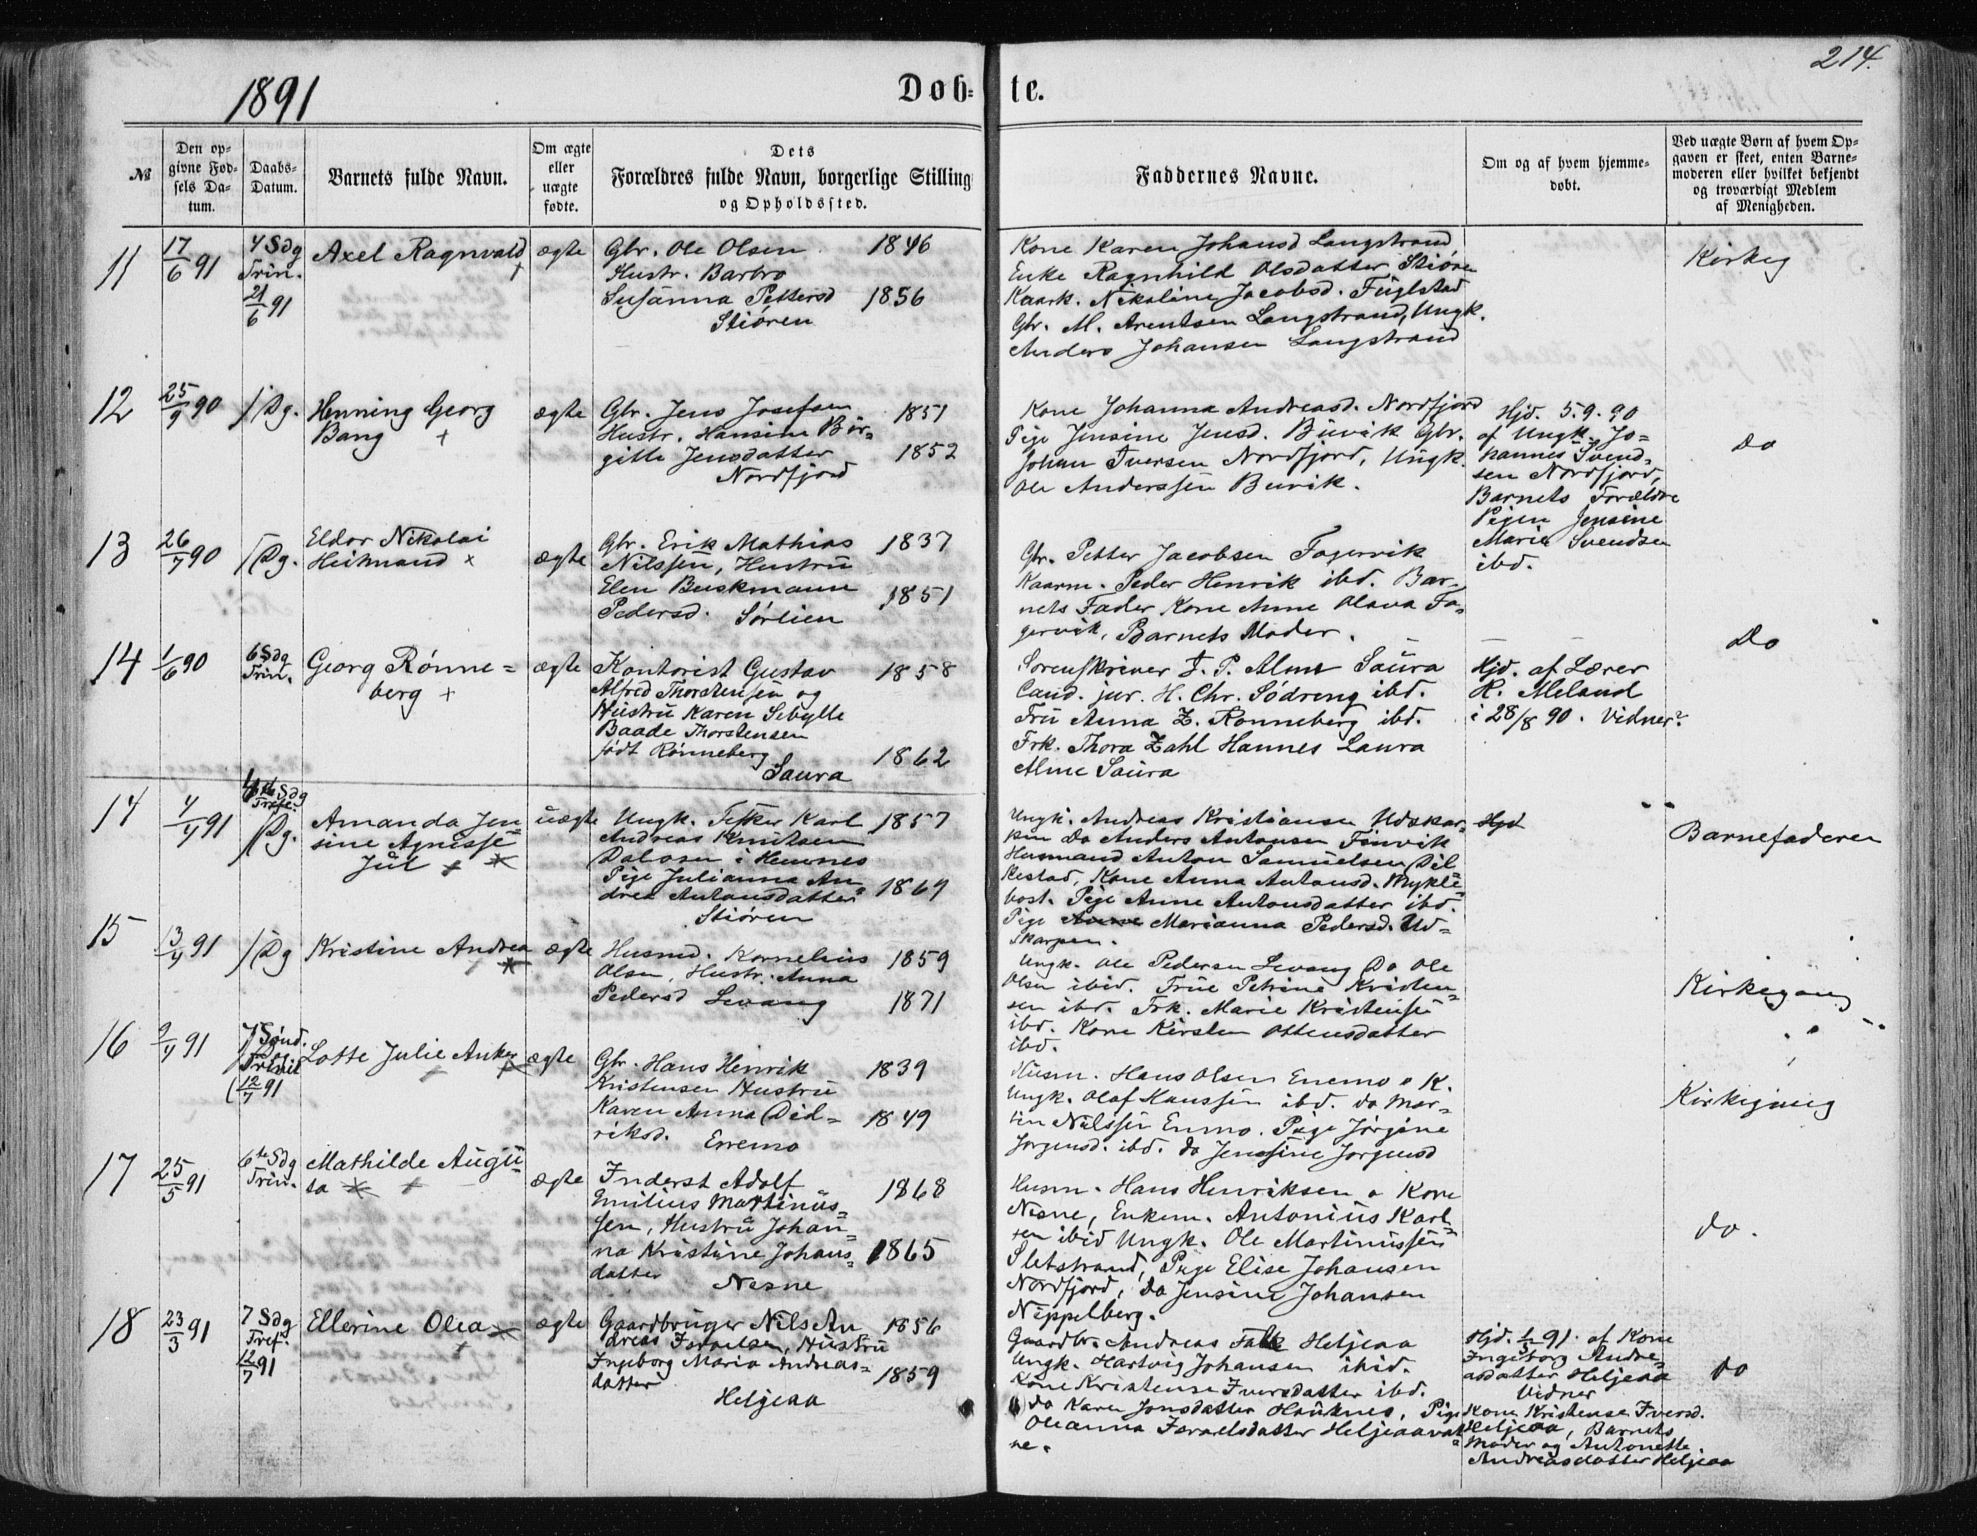 214.
1891
Døb- te.
№
Den op-
givne Fød-
sels Da-
tum.
Daabs-
Datum.
Barnets fulde Navn.
Om ægte
eller
uægte
fødte.
Dets
Forældres fulde Navn, borgerlige Stilling
og Opholdssted.
Faddernes Navne.
Om og af hvem hjemme-
døbt.
Ved uægte Børn af hvem Op-
gaven er skeet, enten Barne-
moderen eller hvilket bekjendt
og troværdigt Medlem
af Menigheden.
11
17/6 91
4 Sdg
Trin.
21/6 91
Axel Ragnvald +
ægte
Gbr. Ole Olsen 1846
Hustr. Barbro
Susanna Pettersd 1856
Stiøren
Kone Karen Johansd Langstrand
Enke Ragnhild Olsdatter Stiøren
Kaark. Nikoline Jacobsd. Fuglstad
Gbr. M. Arentsen Langstrand, Ungk.
Anders Johansen Langstrand
Kirkeg
12
25/9 90
/ Dg.
Henning Georg
Bang +
ægte
Gbr. Jens Josefsen 1851
Hustr. Hansine Bir-
gitte Jensdatter 1852
Nordfjord
Kone Johanna Andreasd. Nordfjord
Pige Jensine Jensd. Buvik Gbr.
Johan Iversen Nordfjord, Ungk.
Ole Anderssen Buvik.
Hjd. 5.9.90
af Ungk. Jo-
hannes Svend-
sen Nordfjord,
Barnets Forældre
Pigen Jensine
Marie Svendsen
ibd.
Do
13
26/7 90
/ Dg.
Eldor Nikolai
Heitmand ×
ægte
Gbr. Erik Mathias 1837
Nilssen, Hustru
Elen Buskmann 1851
Pedersd. Sørlien
Gbr. Petter Jacobsen Fagervik
Kaarm. Peder Henrik ibd. Bar-
nets Fader Kone Anne Olava Fa-
gervik, Barnets Moder.
Do
14
1/6 90
6 Sdg
Trin.
Georg Rønne-
berg +
ægte
Kontorist Gustav 1858
Alfred Thorstensen og
Hustru Karen Sebylle
Baade Thorstensen
født Rønneberg 1862
Saura
Sorenskriver J. P. Alme Saura
Cand. jur. H. Chr. Södreng ibd.
Fru Anna Z. Rønneberg ibd.
Frk. Thora Zahl Hannes Laura
Alme Saura
Hjd. af Lærer
K. Meland
i 28/8 90. Vidner?
14
4/4 91
Sdg
Tref.
/ Dg.
Amanda Jen-
sine Agnesse
Jul + *
uægte
Ungk. Fisker Karl 1857
Andreas Knutsen
Dalosen i Hemnes
Pige Julianna An-
drea Antonsdatter 1869
Stiøren
Ungk. Andreas Kristiansen Udskar-
pen Do Anders Antonsen Finvik
Husmand Anton Samuelsen Dil-
kestad, Kone Anna Antonsd. Mykle-
bost. Pige Anne Antonsdatter ibd.
Pige Marianna Pedersd. Ud-
skarpen.
Hjd
Barnefaderen
15
3/4 91
/ Dg
Kristine Andrea
*
ægte
Husmd. Kornelius 1859
Olsen, Hustr. Anna
Pedersd Levang 1871
Ungk. Ole Pedersen Levang Do Ole
Olsen ibid. Frue Petrine Kristen-
sen ibd. Frk. Marie Kristensen
ibd. Kone Kirsten Ottensdatter
ibd.
Kirkegang
16
9/4 91
7 Sönd.
Trinit
(12/7 91
Lotte Julie Anker
ægte
Gbr. Hans Henrik 1839
Kristensen Hustru
Karen Anna Did- 1849
riksd. Enemo
Husm. Hans Olsen Enemo o K.
Ungk. Olaf Hanssen ibd. do Mar-
tin Nilssen Enmo. Pige Jørgine
Jorgensd. ibd. do Jensine Jorgensd
Kirkegang
17
25/5 91
6te Sdg
Trin.
Mathilde Augu-
ta * +
ægte
Inderst Adolf 1868
Emilius Martinus-
sen, Hustru Johan-
na Kristine Johans- 1865
datter Nesne
Husm. Hans Henriksen o Kone
Nesne, Enkem. Antonius Karl-
sen ibid Ungk. Ole Martinussen
Sletstrand, Pige Elise Johansen
Nordfjord, do Jensine Johansen
Nippelberg.
do.
18
23/3 91
7 Sdg
Tref.
12/7 91
Ellerine Olea *
+
ægte
Gaardbruger Nils An 1856
dreas Israelsen, Hustru
Ingeborg Maria Andreas- 1859
datter
Heljeaa
Gaardbr. Andreas Falk Heljeaa
Ungk. Hartvig Johansen ibid.
Kone Kristense Iversdatter ibd.
do Karen Jonsdatter Hauknes, Pige
Oleanna Israelsdatter Heljeaavat-
ne.
Hjd. 1/5 91. af Kone
Ingeborg Andre-
asdatter Heljeaa
Vidner
Kone Kristense Iversd.
Heljeaa, Barnets
Moder og Antonette
Andreasdatter Heljeaa
do